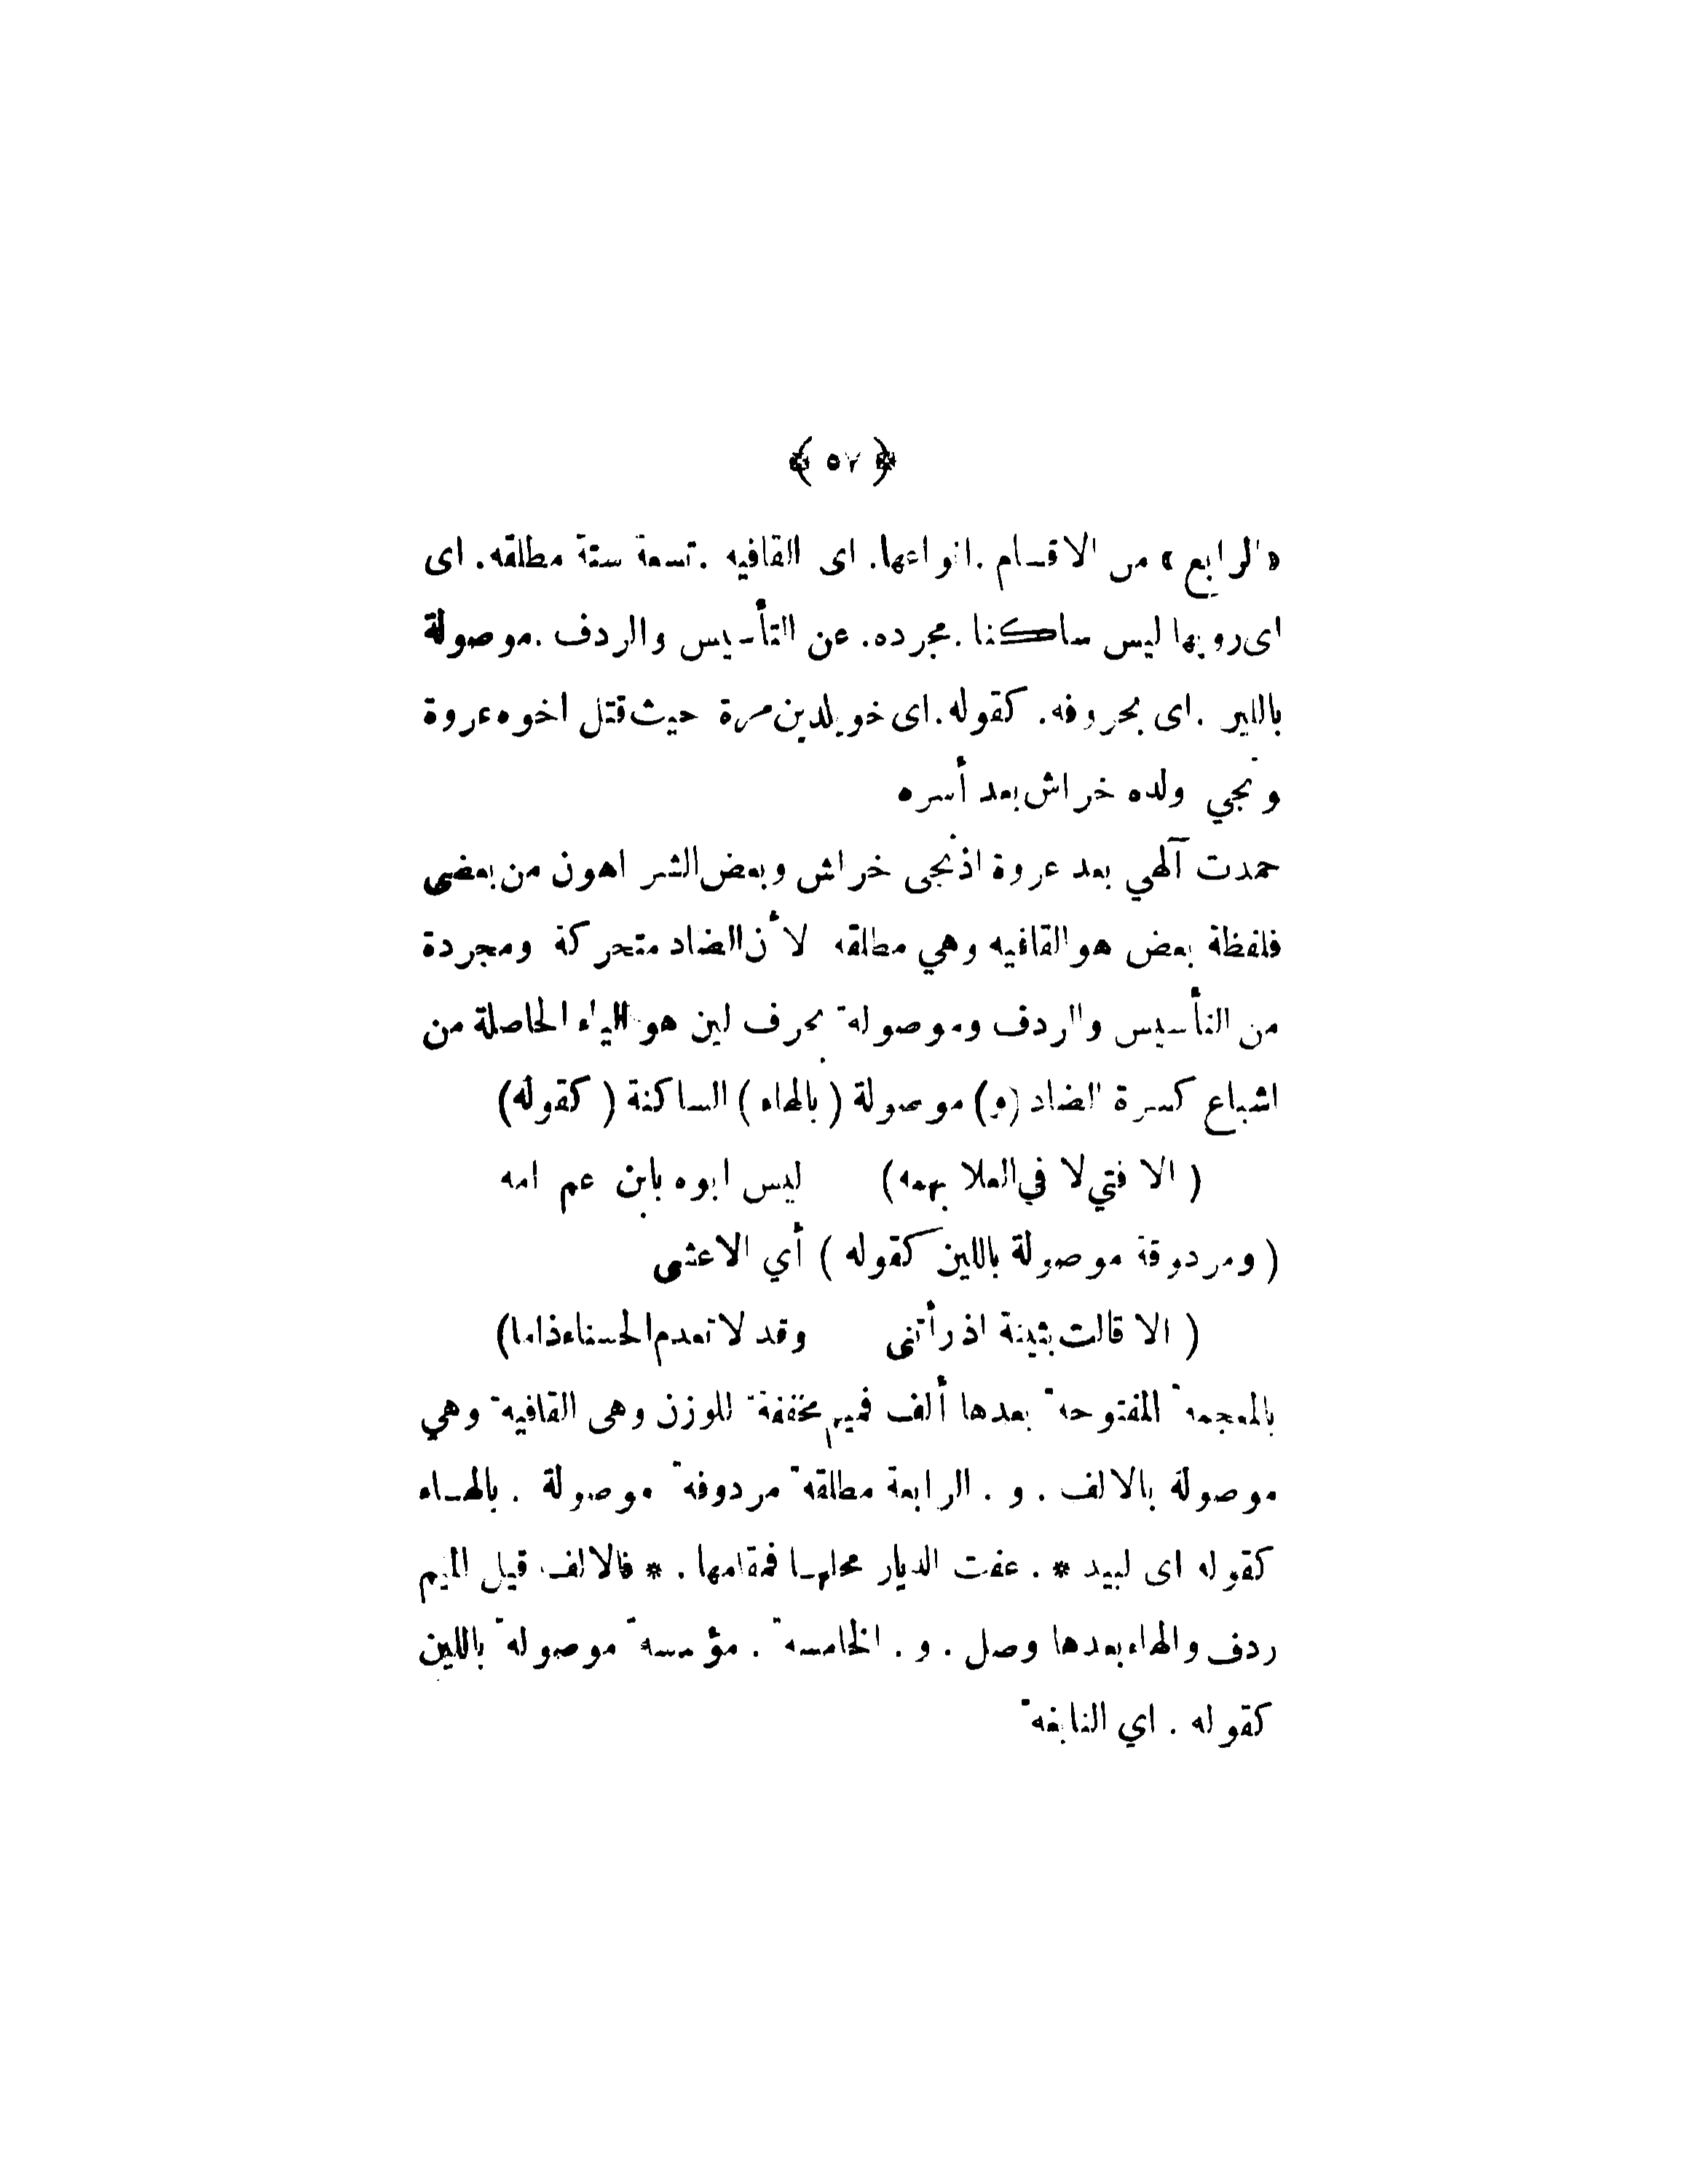 ﴿ ٥٧ ﴾
«الرابع» من الاقسام .انواعها. اى القافيه .تسعة ستة مطلقه. اى
اى رويها ليس ساكنا .مجرده. عن التأسيس والردف .موصولة
باللين .اى بحروفه. كقوله.اى خويلدبن مرة حيث قتل اخوه عروة
ونجي ولده خراش بعد أسره
حمدت آلهي بعد عروة اذ نجى خراش وبعض الشر اهون من بعضى
فلفظة بعض هو القافيه وهي مطلقه لأن الضاد متحركة ومجردة
من التأسيس والردف وموصولة بحرف لين هو الياء الحاصلة من
اشباع كسرة الضاد (و) موصولة (بالهاء) الساكنة (كقوله)
( الا فتي لا في العلا بهمه) ليس ابوه بابن عم امه
( ومردوفة موصولة باللين كقوله ) أي الاعشى
( الا قالت بثينة اذ رأتنى وقد لا تعدم الحسناء ذاما)
بالمعجمة المفتوحة بعدها ألف فميم مخففة للوزن وهى القافية وهي
موصولة بالالف . و . الرابعة مطلقة مردوفة موصولة . بالهاء
كقوله اى لبيد * . عفت الديار محلها فمقامها . * فالالف قبل الميم
ردف والهاء بعدها وصل . و . الخامسة . مؤسسة موصولة باللين
كقوله . اي النابغة